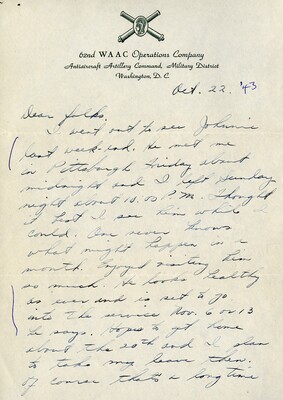 62nd WAAC Operations Company
Antiaircraft Artillery Command, Military District
Washington, D. C.
Oct. 22. '43
Dear folks,
I went out to see Johnnie
last week-end. He met me
in Pittsburgh Friday about
midnight and I left Sunday
night about 10:00 P.M. Thought
it best I see him while I
could. One never knows
what might happen in a
month. Enjoyed visiting him
so much. He looks healthy
as ever and is set to go
into the service Nov. 6 or 13
he says. Hopes to get home
about the 20th and I plan
to take my leave then.
Of course thats a long time